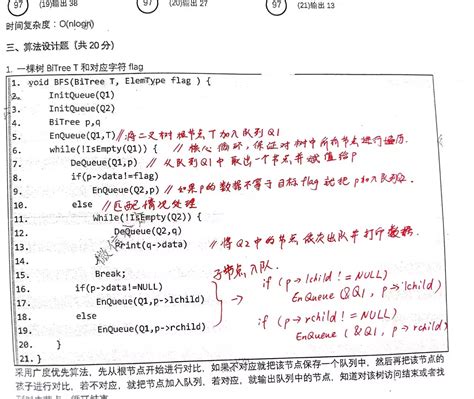 97 (19)输出 38 97 (20)输出 27 97 (21)输出 13
时间复杂度：O(nlogn)
三、算法设计题（共 20 分）
1. 一棵树 BiTree T 和对应字符 flag
1. void BFS(BiTree T, ElemType flag ) {
2. InitQueue(Q1)
3. InitQueue(Q2)
4. BiTree p,q
5. EnQueue(Q1,T) //将二叉树根节点T加入队列Q1
6. while(!IsEmpty(Q1)) { //核心循环,保证对树中所有节点进行遍历.
7. DeQueue(Q1,p) //从队列Q1中取出一个节点并赋值给p
8. if(p->data!=flag)
9. EnQueue(Q2,p) //如果p的数据不等于目标flag就把p加入队列Q2.
10. else //匹配情况处理
11. While(!IsEmpty(Q2)) {
12. DeQueue(Q2,q)
13. Print(q->data) //将Q2中的节点依次出队并打印数据.
14. }
15. Break; 子节点入队.
16. if(p->data!=NULL) if (p->lchild != NULL)
17. EnQueue(Q1,p->lchild) → EnQueue (&Q1, p->lchild)
18. else if (p->rchild != NULL)
19. EnQueue(Q1,p->rchild) EnQueue (&Q1, p->rchild)
20. }
21. }
采用广度优先算法，先从根节点开始进行对比，如果不对应就把该节点保存一个队列中，然后再把该节点的
孩子进行对比，若不对应，就把节点加入队列，若对应，就输出队列中的节点，知道对该树访问结束或者找